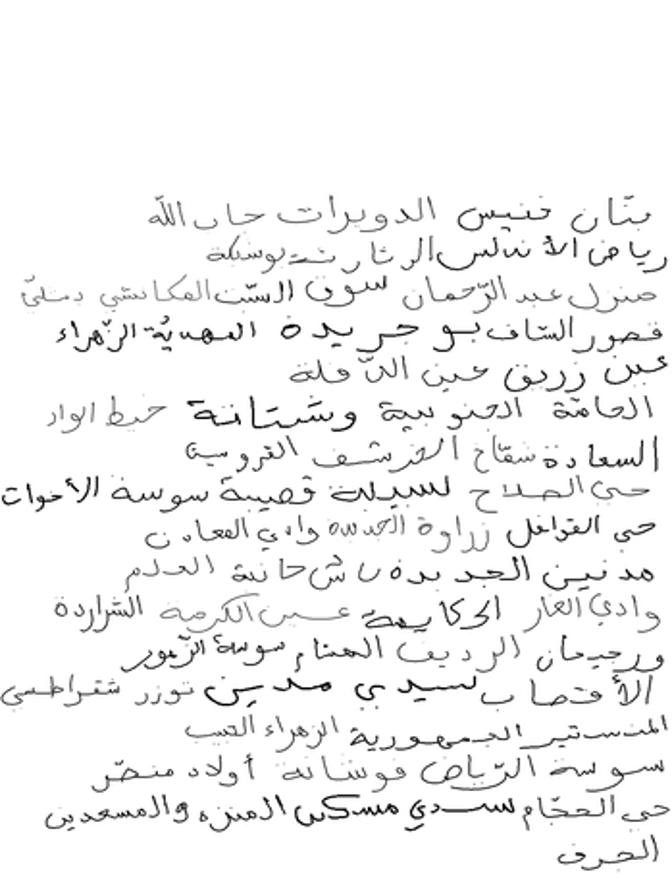 بنّان فنيس الدويرات جاب الله
رياض الأندلس بوسبكة
منزل عبد الرّحمان سوق السّبت المكانشي دمنليّ
قصور السّاف بو جريدة المهديّة الزّهراء
عين زريق عين النّفلة
الحامّة الجنوبية وشتانة خيط الواد
السعادة شقاح الخرشف الفروسية
حي الصلاح لسيلة قصيبة سوسة الأخوات
حي القوافل زراوة الجديدة وادي المعادن
مدنين الجديدة باش حانبة العلم
وادي الغار الحكايمة عين الكرمة الشراردة
ورجيجان الرديف الهشام سوسة الزّهور
الأقصاب سيدي مدين توزر شقراطسي
المنستير الجمهورية الزهراء الحبيب
سوسة الرّياض فوسانة أولاد منصّر
حي الحجّام سيدي مسكين المنزه والمسعدين
الجرف